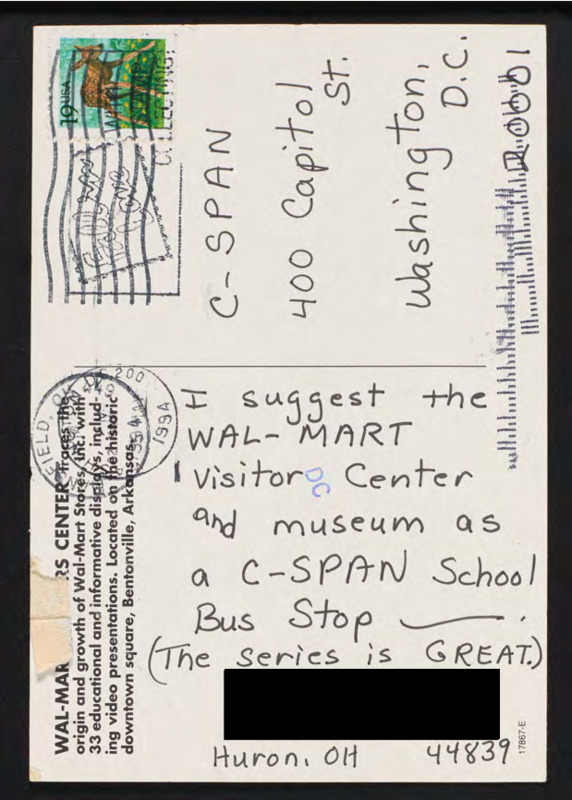 19USA
C-SPAN
400 Capitol
St.
Washington,
D.C.
20001
1994
I suggest the
WAL-MART
Visitor Center
DC
and museum as
a C-SPAN School
Bus Stop.
(The series is GREAT.)
Huron, OH 44839
17867-E
WAL-MAR RS CENTER traces the
origin and growth of Wal-Mart Stores, Inc. with
33 educational and informative displays, includ-
ing video presentations. Located on the historic
downtown square, Bentonville, Arkansas.